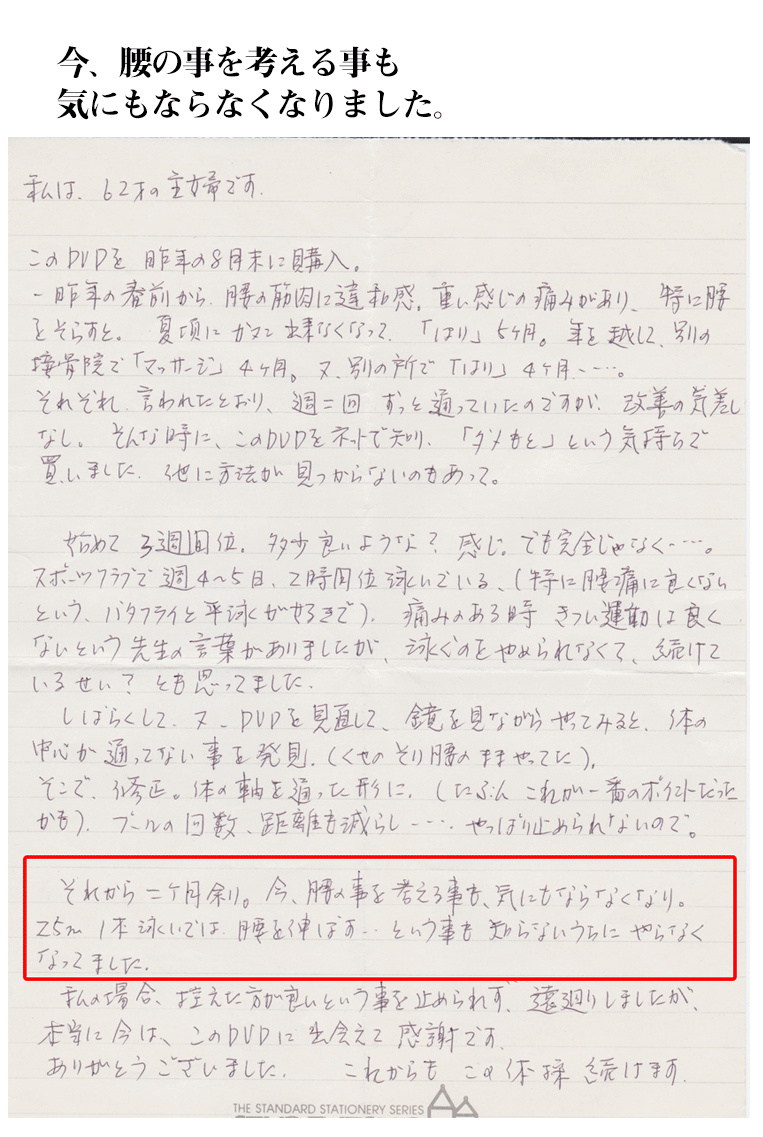 今、腰の事を考える事も
気にもならなくなりました。
私は、62才の主婦です.
このDVDを 昨年の8月末に購入。
一昨年の春前から、腰の筋肉に違和感。重い感じの痛みがあり、特に腰
をそらすと。 夏頃に ガマン出来なくなって、「はり」5ヶ月。年を越して、別の
接骨院で「マッサージ」4ヶ月。又、別の所で「はり」4ヶ月・・・・。
それぞれ、言われたとおり、週二回 ずっと通っていたのですが、改善の気差し
なし。そんな時に、このDVDをネットで知り、「ダメもと」という気持ちで
買いました. 他に方法が見つからないのもあって。
始めて 3週間位。多少良いような? 感じ。でも完全じゃなく・・・・。
スポーツクラブで週4~5日、2時間位泳いでいる、(特に腰痛に良くない
という、バタフライと平泳ぎが好きで)、痛みのある時 きつい運動は良く
ないという先生の言葉がありましたが、泳ぐのをやめられなくて、続けて
いるせい? とも思ってました.
しばらくして、又、DVDを見直して、鏡を見ながらやってみると、体の
中心が通ってない事を発見.(くせのそり腰のままやってた)。
そこで、修正。体の軸を通った形に.(たぶん これが一番のポイントだった
かも)。プールの回数、距離も減らし・・・・やっぱり止められないので。
それから二ヶ月余り。今、腰の事を考える事も、気にもならなくなり。
25m 1本泳いでは、腰を伸ばす・・という事も 知らないうちに やらなく
なってました.
私の場合、控えた方が良いという事を止められず、遠廻りしましたが、
本当に今は、このDVDに出会えて感謝です.
ありがとうございました. これからも この体操 続けます.
THE STANDARD STATIONERY SERIES